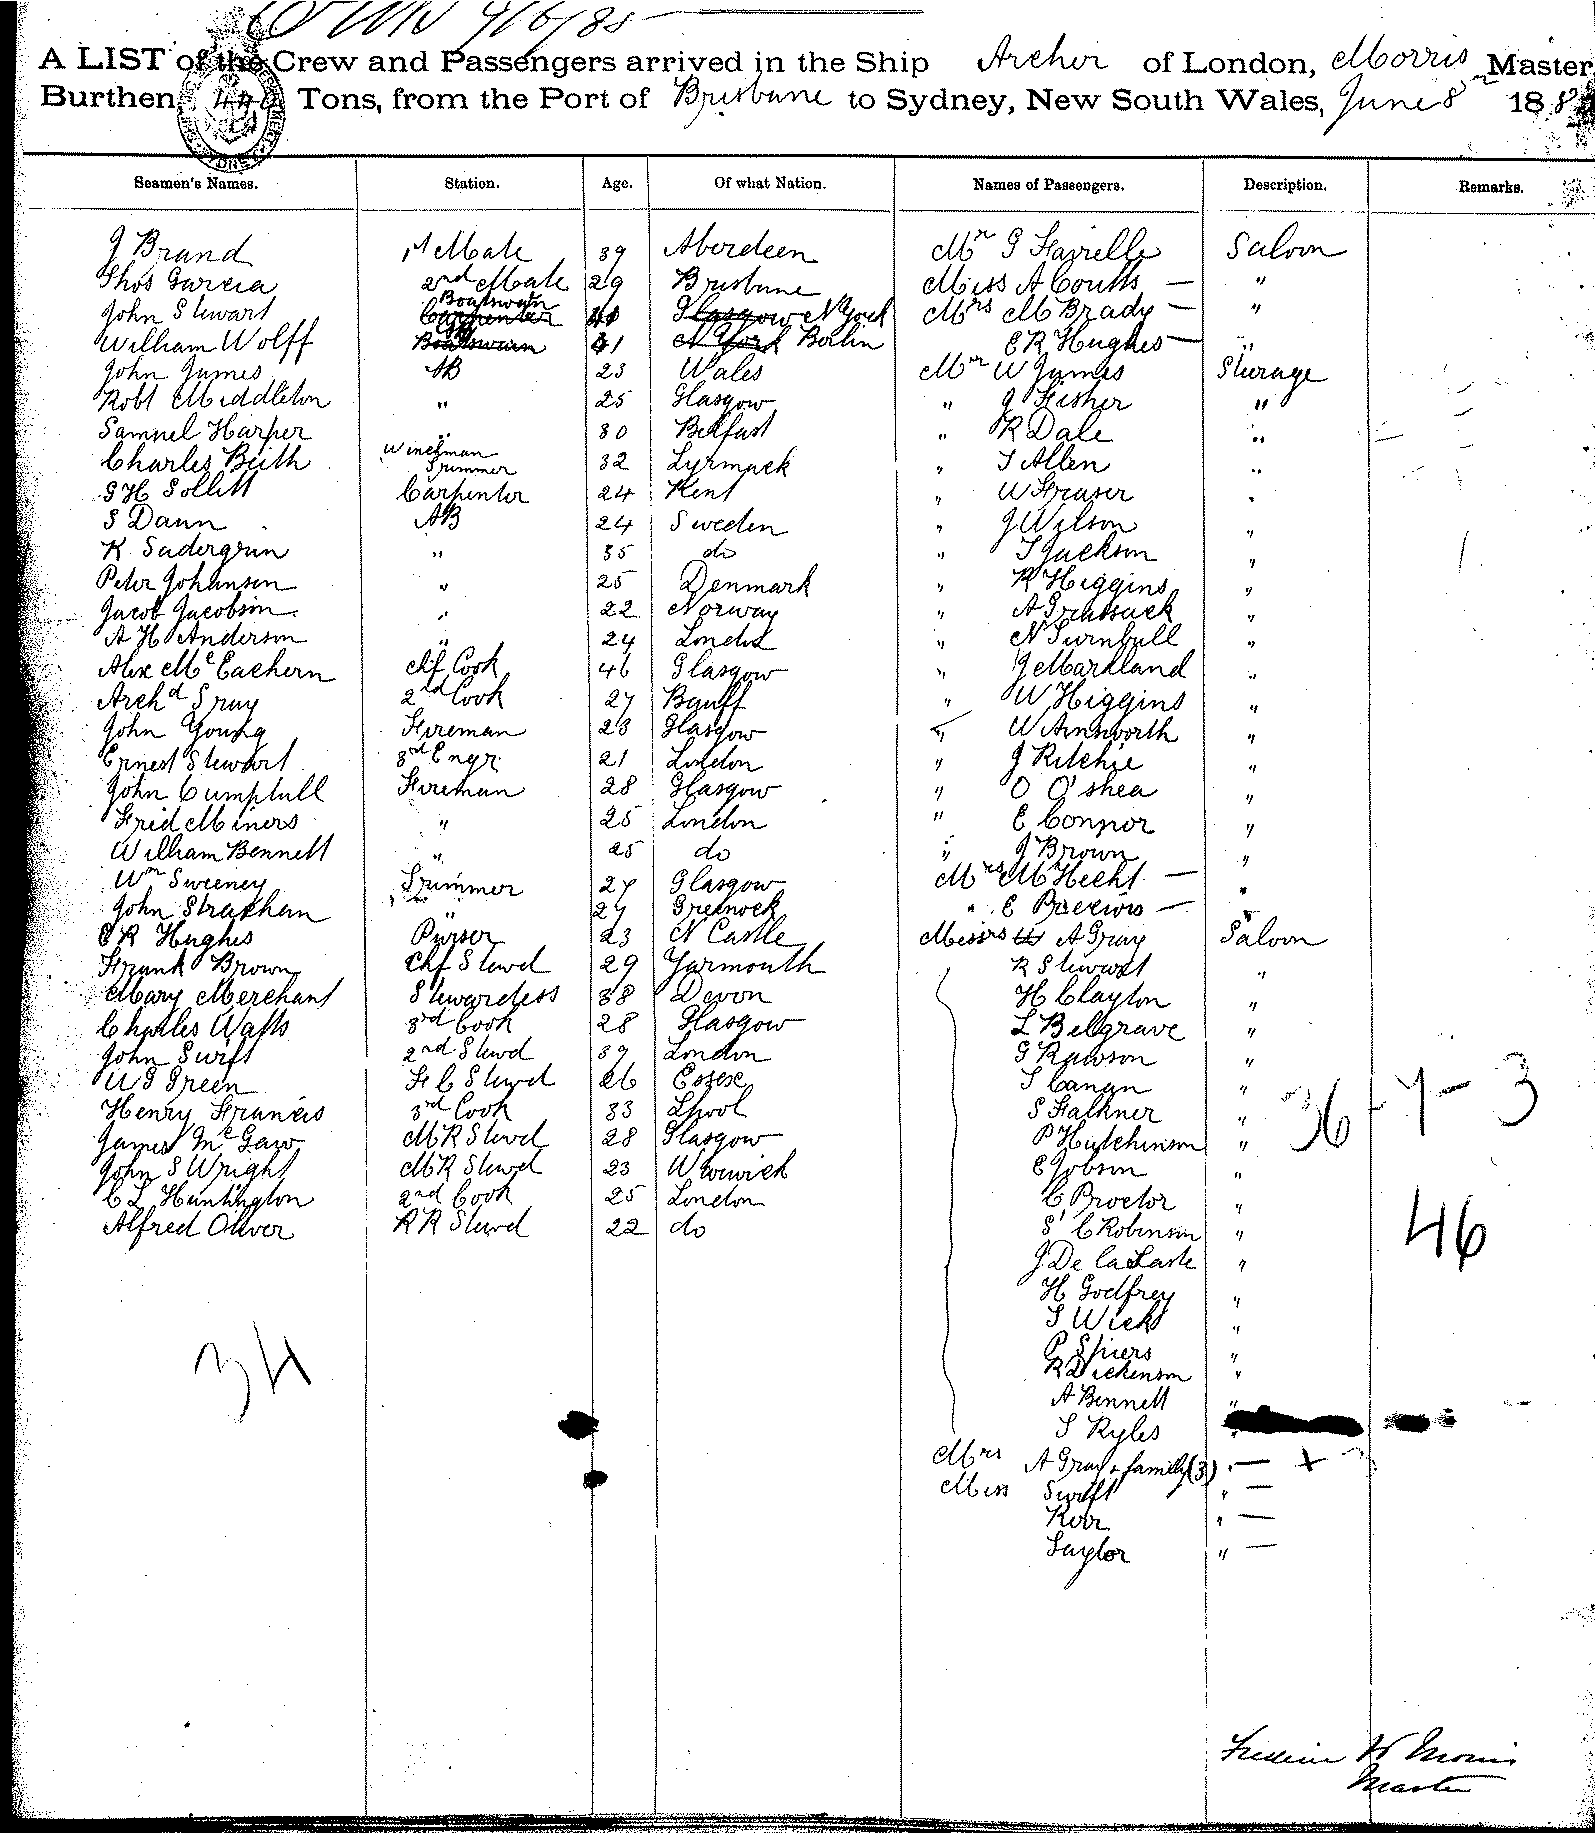 A LIST of the Crew and Passengers arrived in the Ship Archer of London, Morris Master
Burthen, Tons, from the Port of Brisbane to Sydney, New South Wales, June 8 188
Seamen's Names. Station. Age. Of what Nation. Names of Passengers. Description. Remarks.
J Brand 1st Mate 39 Aberdeen Mr G Saloon
Thos Garcia 2nd Mate 29 Brisbane Miss A Coutts — "
John Stewart Boatswain Carpenter Glasgow N York Mrs M Brady — "
William Wolff Boatswain 41 N York Berlin E R Hughes — "
John James AB 23 Wales Mr W James Sturage
Robt Middleton " 25 Glasgow " J Fisher "
Samuel Harper " 30 Belfast " R Dale "
Charles Beith Winchman Trimmer 32 " T Allen "
S H Sollitt Carpenter 24 Kent " W Fraser "
S Dann AB 24 Sweden " J Wilson "
K Sadergrun " 35 do " T Jackson "
Peter Johansen " 25 Denmark " R Higgins "
Jacob Jacobsin " 22 Norway " A "
A H Anderson " 24 " N Turnbull "
Alex McEachern Chf Cook 46 Glasgow " J Markland "
Archd Gray 2nd Cook 27 Banff " W Higgins "
John Young Fireman 28 Glasgow " W Ainsworth "
Ernest Stewart 3rd Engr 21 London " J Ritchie "
John Campbell Fireman 28 Glasgow " O O'shea "
Fred Miners " 25 London " E Connor "
William Bennett " 25 do " J Brown "
Wm Sweeney Trimmer 27 Glasgow Mrs M Hecht — "
John Strachan " 27 Greenock " E — "
E R Hughes Purser 23 N Castle Messrs A Gray Saloon
Frank Brown Chf Stewd 29 Yarmouth R Stewart "
Mary Merchant Stewardess 38 Devon H Clayton "
Charles Watts 3rd Cook 28 Glasgow L Belgrave "
John Swift 2nd Stewd 39 London G Rawson "
W G Green F C Stewd 26 Essex T Canan "
Henry Francis 3rd Cook 33 Lpool S Falkner " 36 - 7 - 3
James McGaw M R Stewd 28 Glasgow P Hutchinson "
John S Wright M R Stewd 23 Warwick E Jobson "
C L Huntington 2nd Cook 25 London C Proctor "
Alfred Oliver R R Stewd 22 do St C Robinson " 46
J De la "
H Godfrey "
T Wicks "
P Spiers "
34 R Dickenson "
A Bennett "
T Ryles "
Mrs A Gray & family (3) " — +
Miss Swift " —
Kerr " —
Taylor " —
W Morris
Master